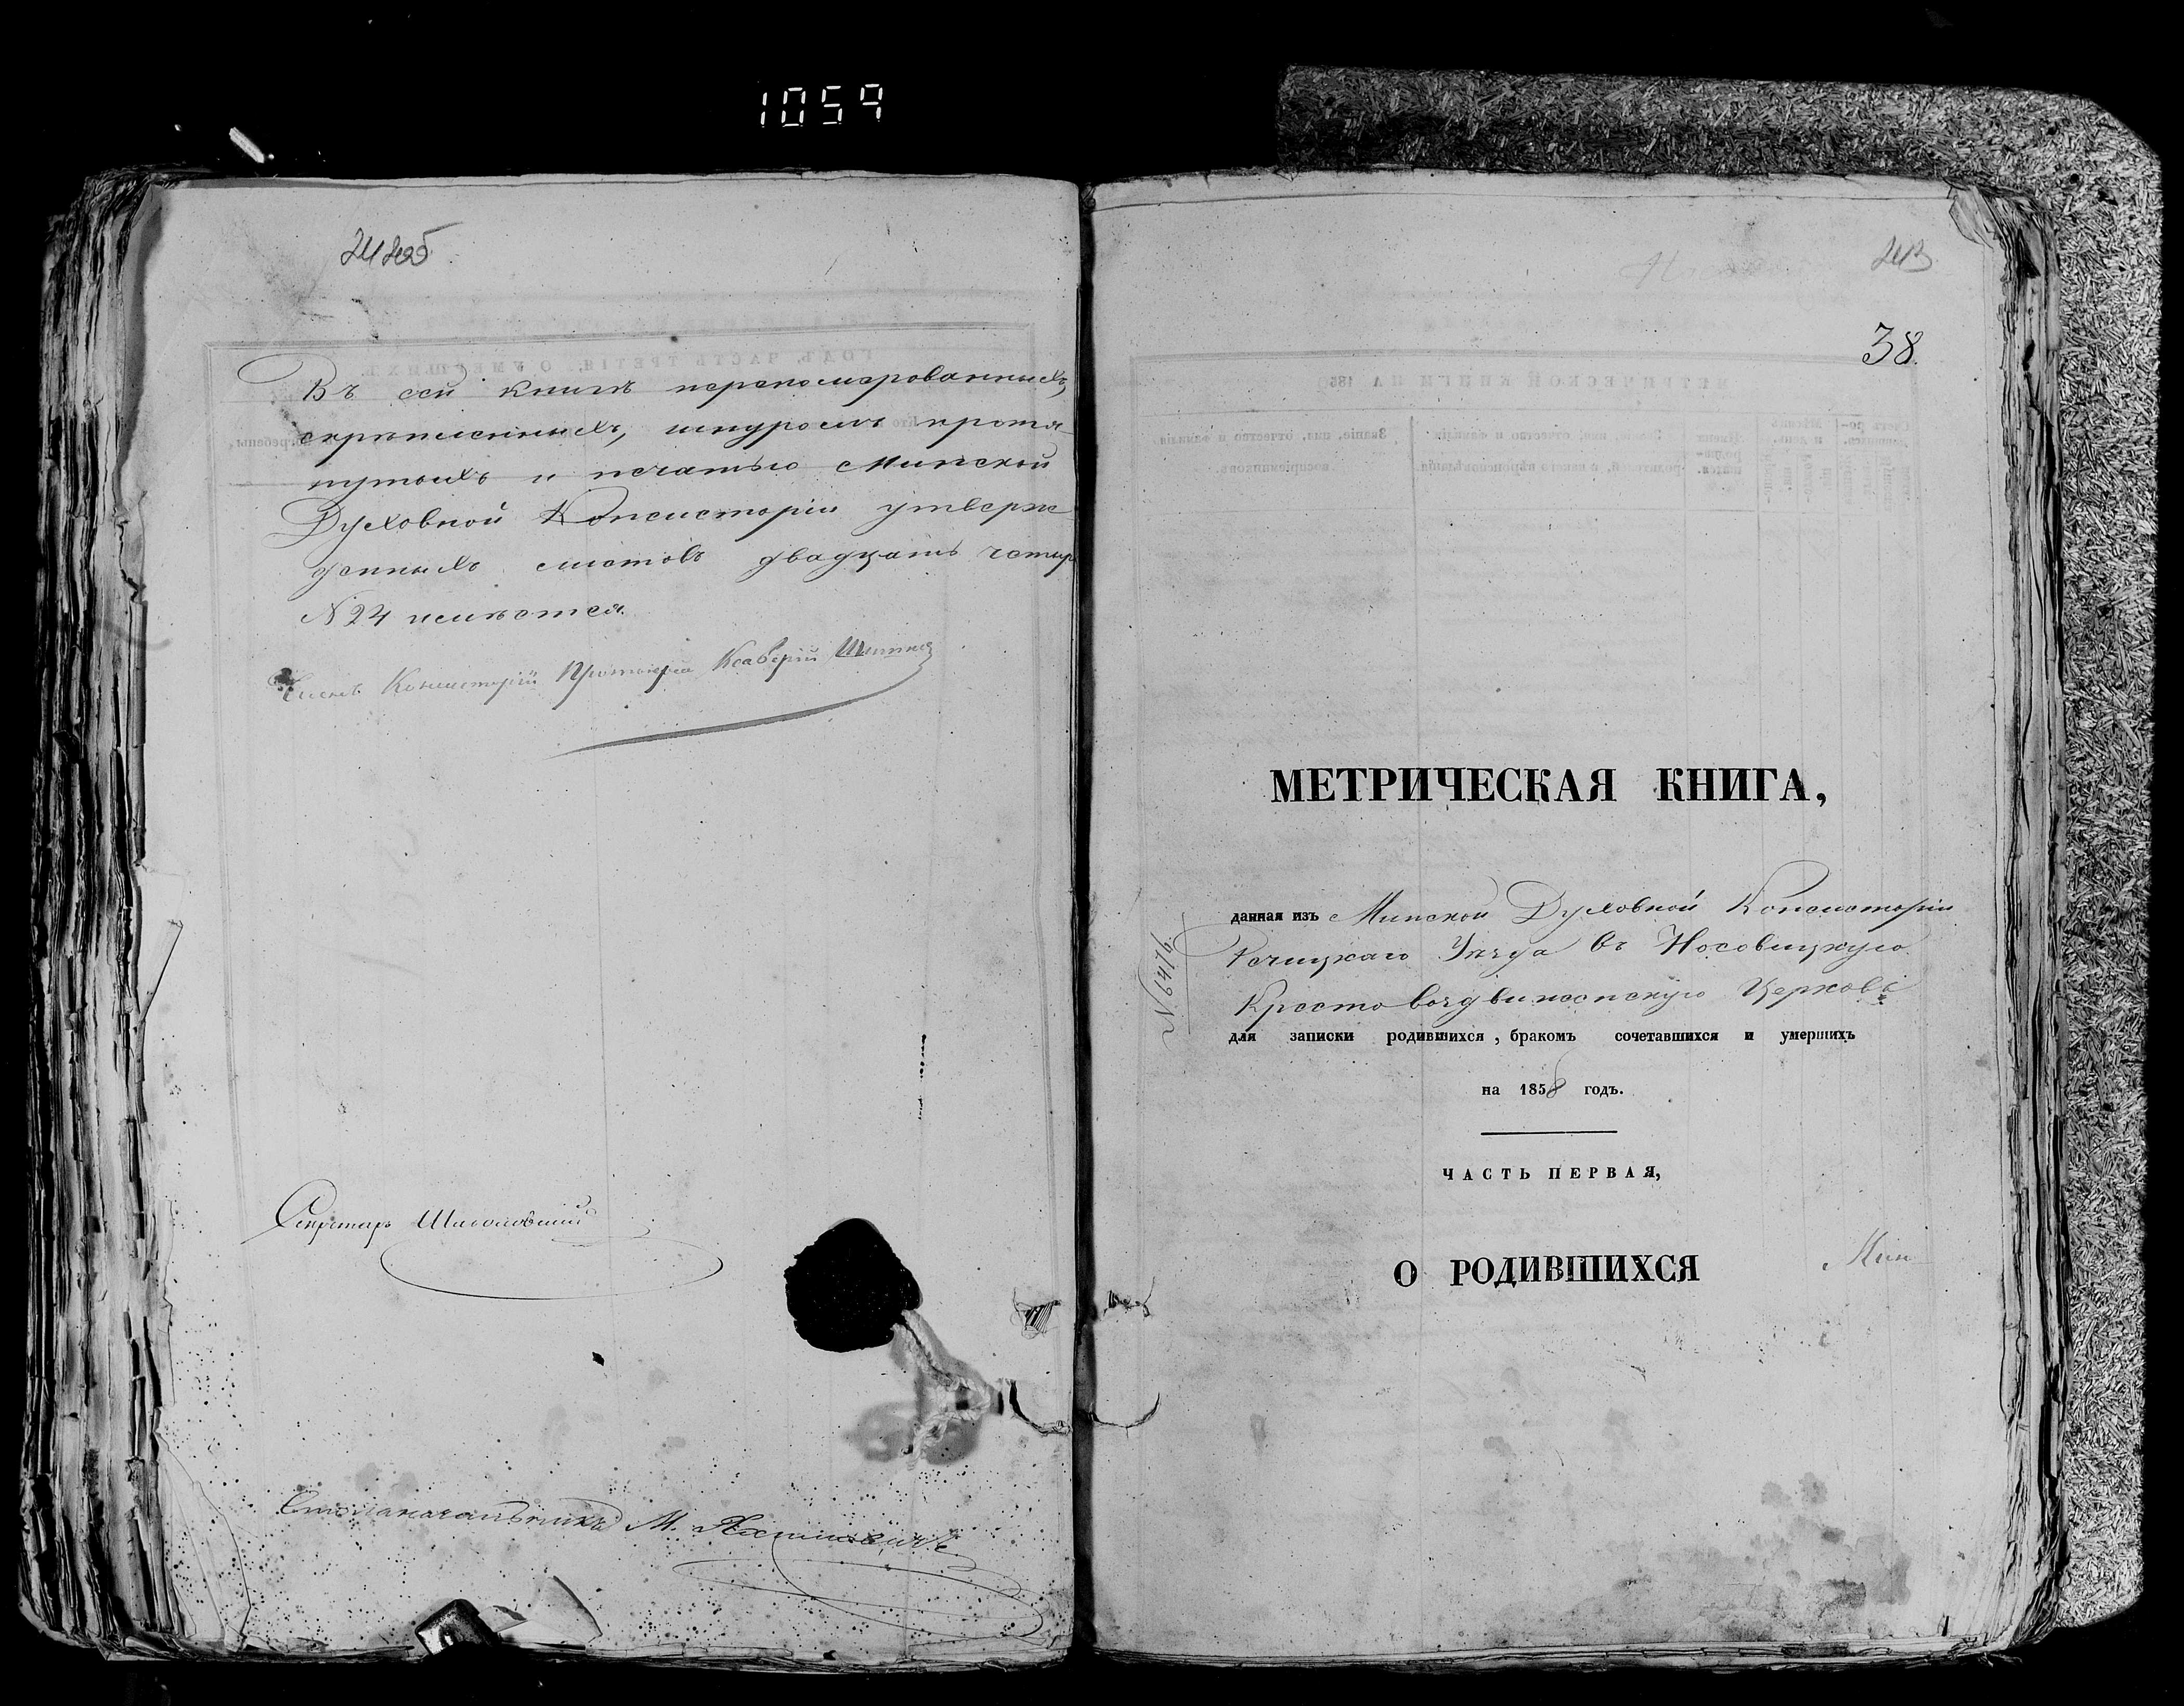 1059
Въ сей книгѣ перенумерованныхъ,
скрѣпленныхъ, шнуромъ протя-
нутыхъ и печатью Минской
Духовной Консисторіи утверж
денныхъ листовъ двадцать четыр
№ 24 имѣется.
Членъ Консисторіи Протоіерей Ксаверій
Секретарь
Столоначальникъ М.
38.
МЕТРИЧЕСКАЯ КНИГА,
данная изъ Минской Духовной Консисторіи
Рѣчицкаго Уѣзда въ Носовицкую
Крестовоздвиженскую Церковь
№ 6416
для записки родившихся, бракомъ сочетавшихся и умершихъ
на 1858 годъ.
ЧАСТЬ ПЕРВАЯ,
О РОДИВШИХСЯ
Мин